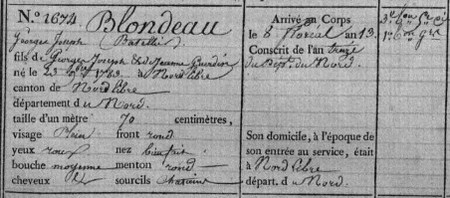 N.º 1674. Blondeau
Georges Joseph (Batellier)
fils de Georges Joseph & de Jeanne
né le 23 1783 à Nord libre
canton de Nord libre
département du Nord.
taille d'un mètre 70 centimètres,
visage plein front rond
yeux roux nez
bouche moyenne menton rond
cheveux id. sourcils chatains
Arrivé au Corps
le 8 floréal an 13.
Conscrit de l'an treize
du Dépt. du Nord.
Son domicile, à l'époque de
son entrée au service, était
à Nord libre
départ. du Nord.
3e Bon
1er Bon